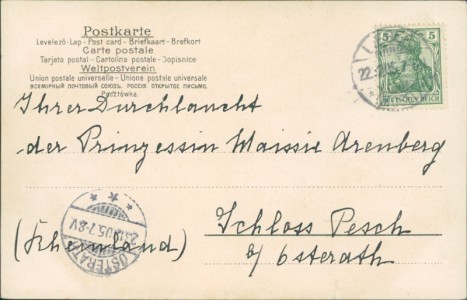 Postkarte
Levelező-Lap - Post card - Briefkaart - Brefkort
Carte postale
Tarjeta postal - Cartolina postale - Dopisnice
Weltpostverein
Union postale universelle - Unione postale universale
ВСЕМIРНЫЙ ПОЧТОВЫЙ СОЮЗЪ. РОССIЯ. ОТКРЫТОЕ ПИСЬМО.
Pocztówka
5 5
DEUTSCHES REICH
22.
Ihrer Durchlaucht
der Prinzessin Maissie Arenberg
Schloss Pesch
b/ Osterath
(Rheinland)
OSTERATH
05.7-8V